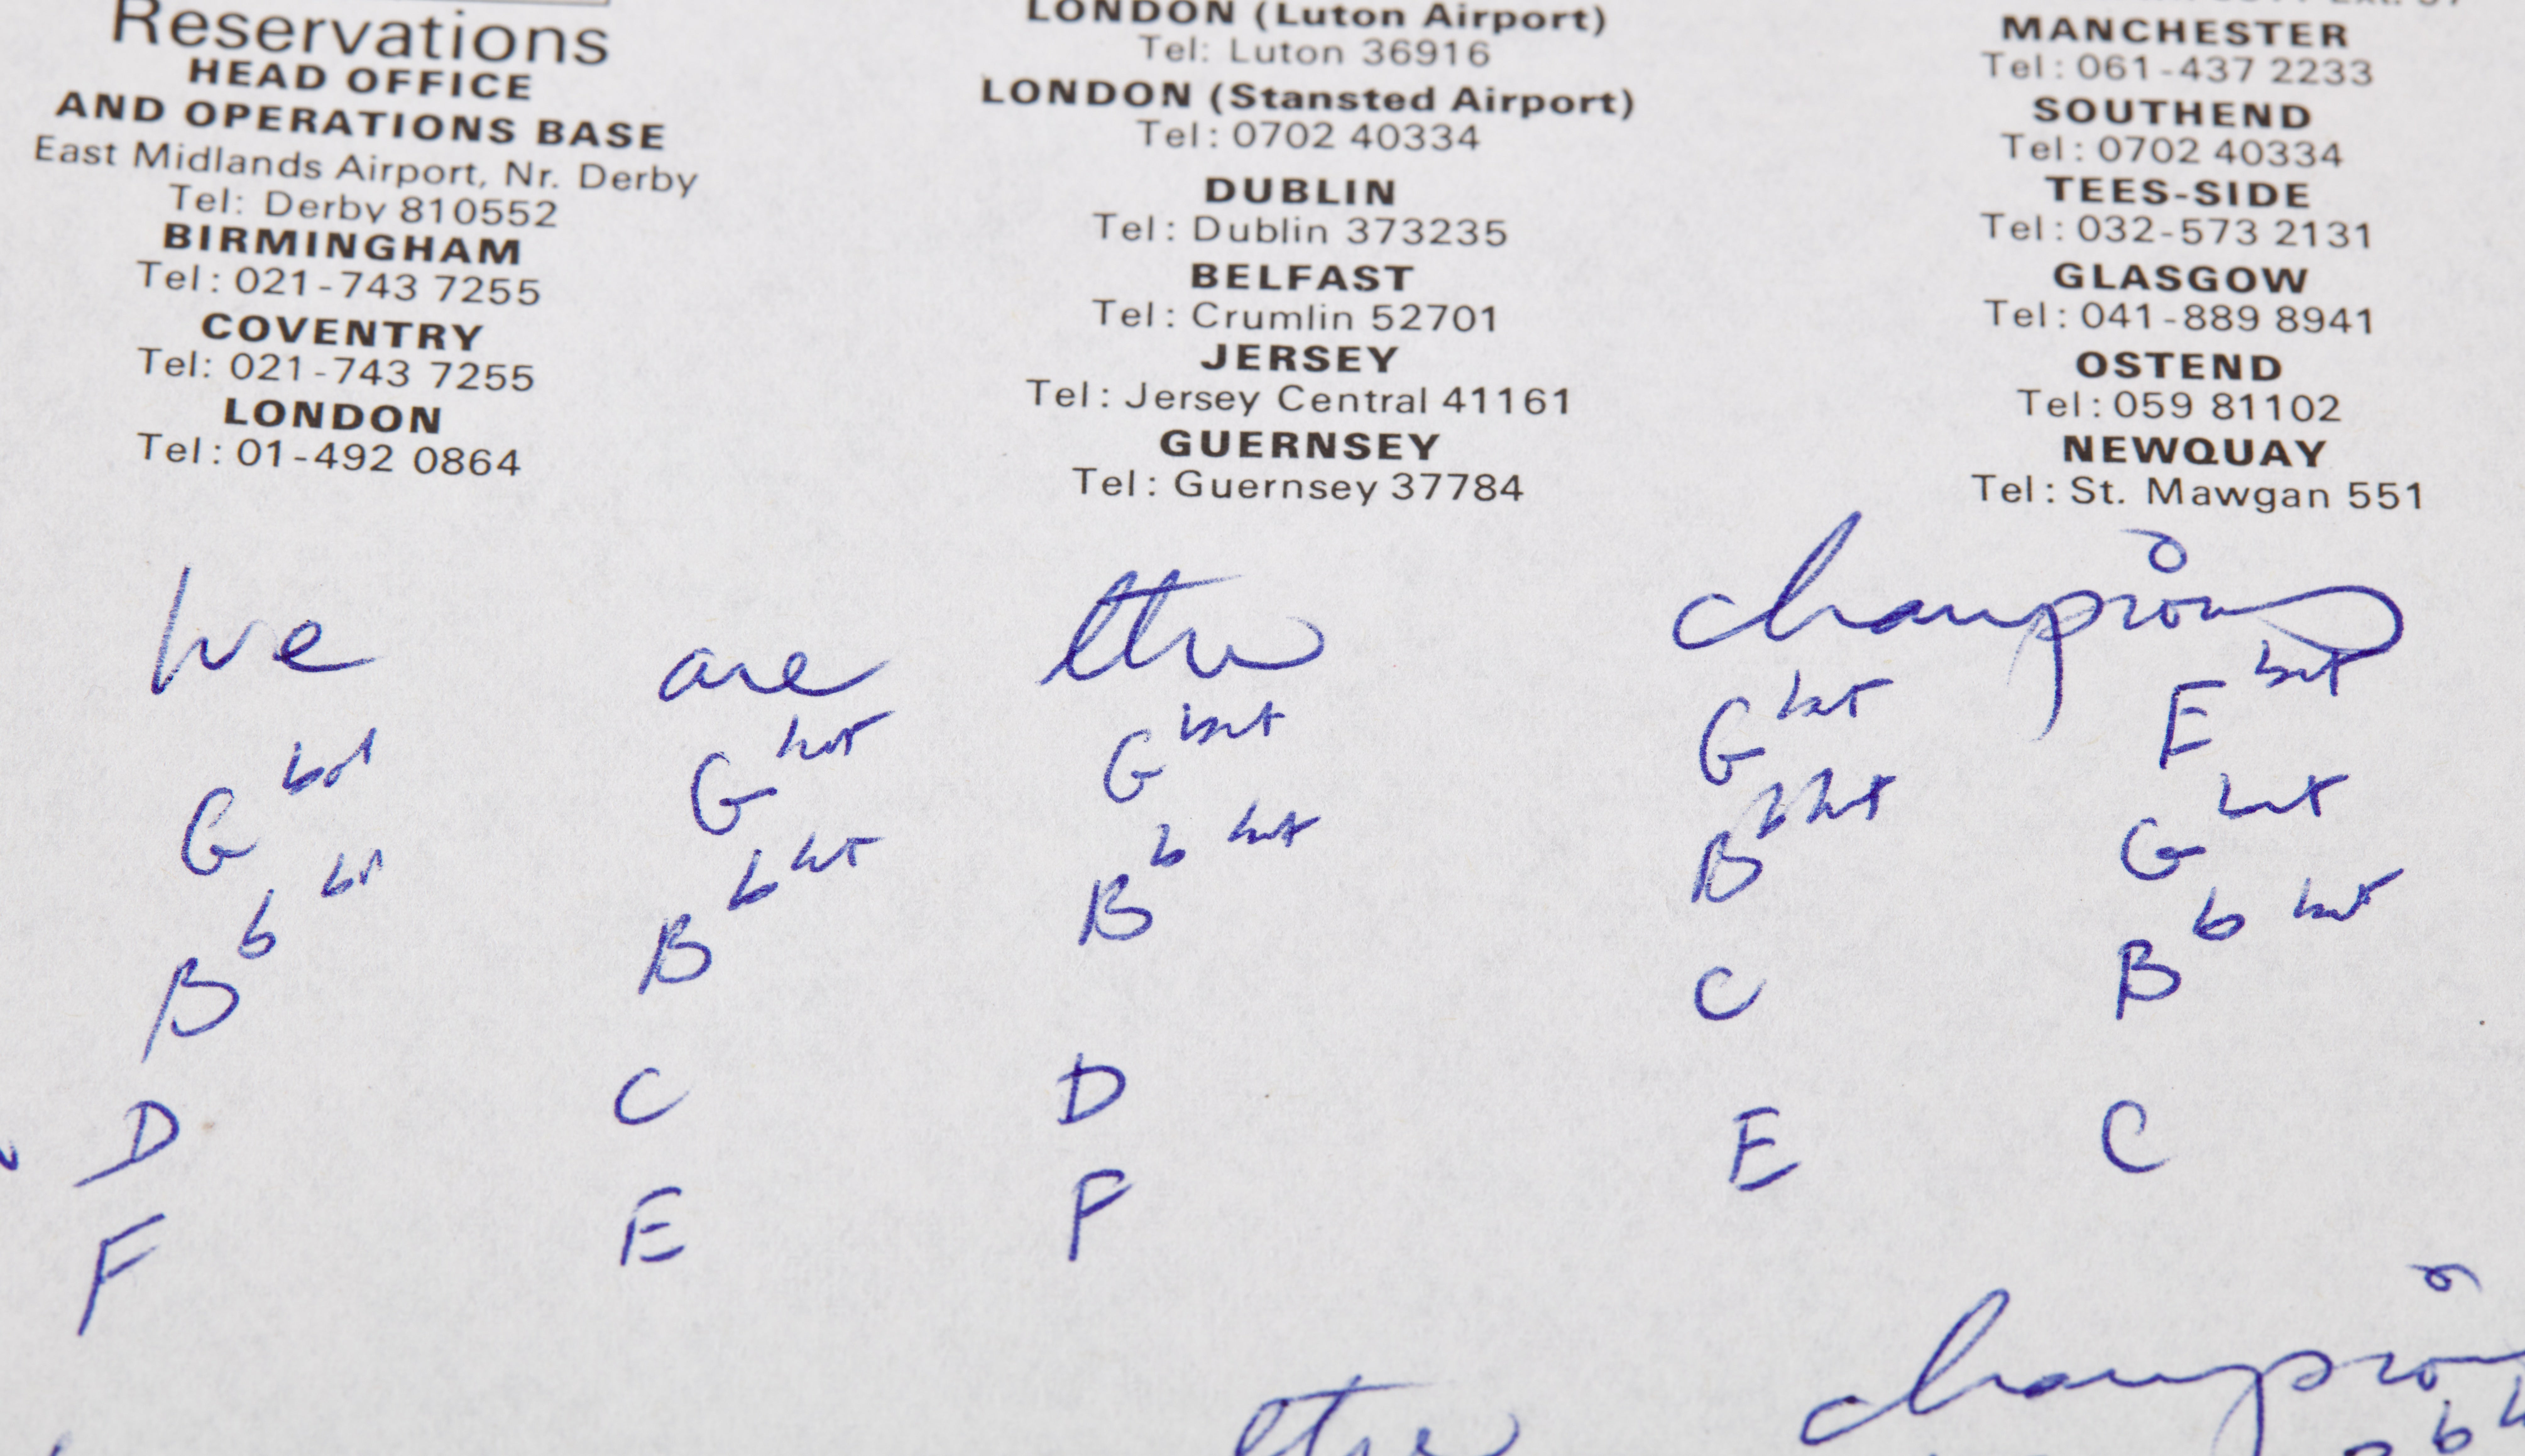 Reservations
HEAD OFFICE
AND OPERATIONS BASE
East Midlands Airport, Nr. Derby
Tel: Derby 810552
BIRMINGHAM
Tel: 021-743 7255
COVENTRY
Tel: 021-743 7255
LONDON
Tel: 01-492 0864
LONDON (Luton Airport)
Tel: Luton 36916
LONDON (Stansted Airport)
Tel: 0702 40334
DUBLIN
Tel: Dublin 373235
BELFAST
Tel: Crumlin 52701
JERSEY
Tel: Jersey Central 41161
GUERNSEY
Tel: Guernsey 37784
MANCHESTER
Tel: 061-437 2233
SOUTHEND
Tel: 0702 40334
TEES-SIDE
Tel: 032-573 2131
GLASGOW
Tel: 041-889 8941
OSTEND
Tel: 059 81102
NEWQUAY
Tel: St. Mawgan 551
We are the champions
G G G G F
B b B b B b B b G
D C D C B b
F E F E C
the champion